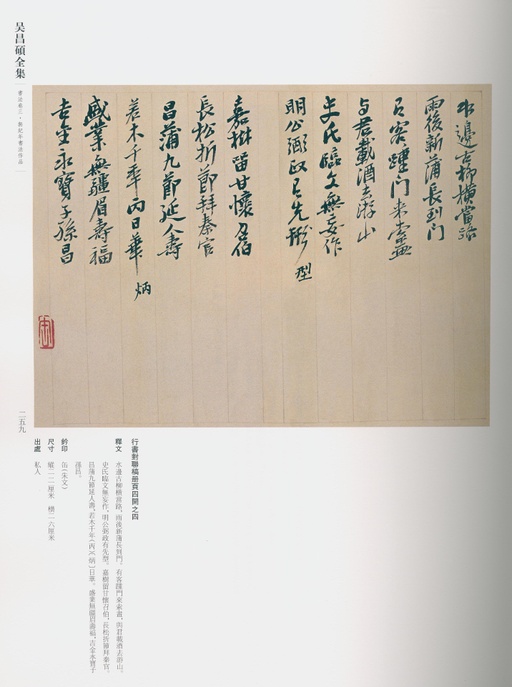 吴昌碩全集
書法卷三·無紀年書法作品
水邊古柳橫當路
雨後新蒲長到門
有客踵門來索畫
与君載酒去游山
史氏臨文無妄作
明公涖政有先形 型
嘉樹留甘懷召伯
長松折節拜秦官
昌蒲九節延人壽
若木千年丙日華 炳
盛業無疆眉壽福
吉金永寶子孫昌
二五九
行書對聯稿册頁四開之四
釋文 水邊古柳橫當路，雨後新蒲長到門。有客踵門來索畫，與君載酒去游山。
史氏臨文無妄作，明公涖政有先型。嘉樹留甘懷召伯，長松折節拜秦官。
昌蒲九節延人壽，若木千年(丙)〔炳〕日華。盛業無疆眉壽福，吉金永寶子
孫昌。
鈐印 缶(朱文)
尺寸 縱二二厘米 橫二六厘米
出處 私人